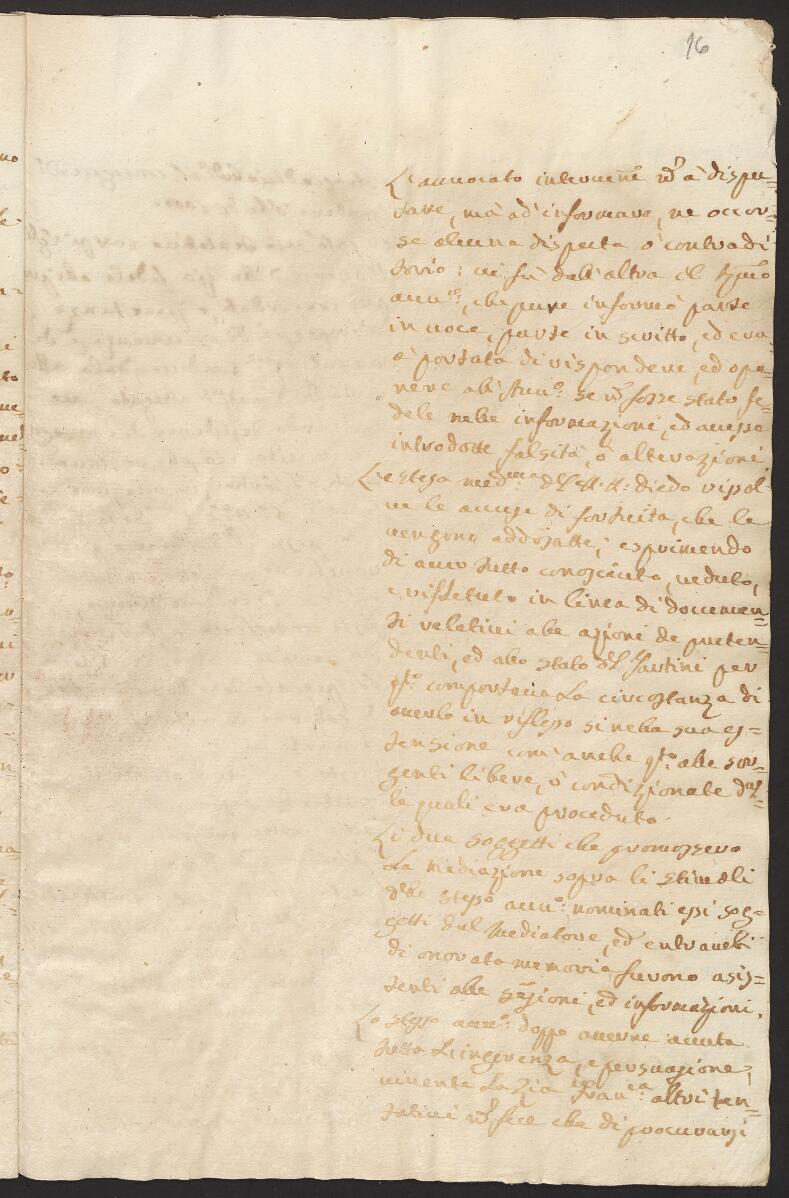 16
L'auuocato interuenne nõ à dispu=
tare, mà ad' informare, ne occor=
se alcuna disputa ò contradi
torio; ui fù dall' altra il
auu:º, che pure informò parte
in uoce, parte in scritto, ed era
à portata di rispondere, ed opo=
nere all' Auu:º se nõ fosse stato fe=
dele nelle informazioni, ed auesse
introdotte falsità, ò alterazioni.
La stessa med:ma Diedo risol=
ue le accuse di che le
uengono addossatte; esprimendo
di auer tutto conosciuto, ueduto,
e rifletuto in linea di documen=
ti relatiui alle azioni de preten=
denti, ed allo stato del per
qto comportaua La circostanza di
auerlo in riflesso si nella sua es=
tensione com' anche qto alle sor=
genti libere, ò condizionate dal=
le quali era proceduto.
Li due soggetti che promossero
La mediazione sopra li stimoli
dello stesso auu:º nominati essi sog=
getti dal Mediatore, ed' entrambi
di onorata memoria furono assis=
tenti alle sessioni, ed informazioni.
Lo stesso auu:º doppo auerne auuta
tutta L'ingerenza, e persuasione,
uiuente La Zia Fran:ca altri ten=
tatiui nõ fece che di procurarsi